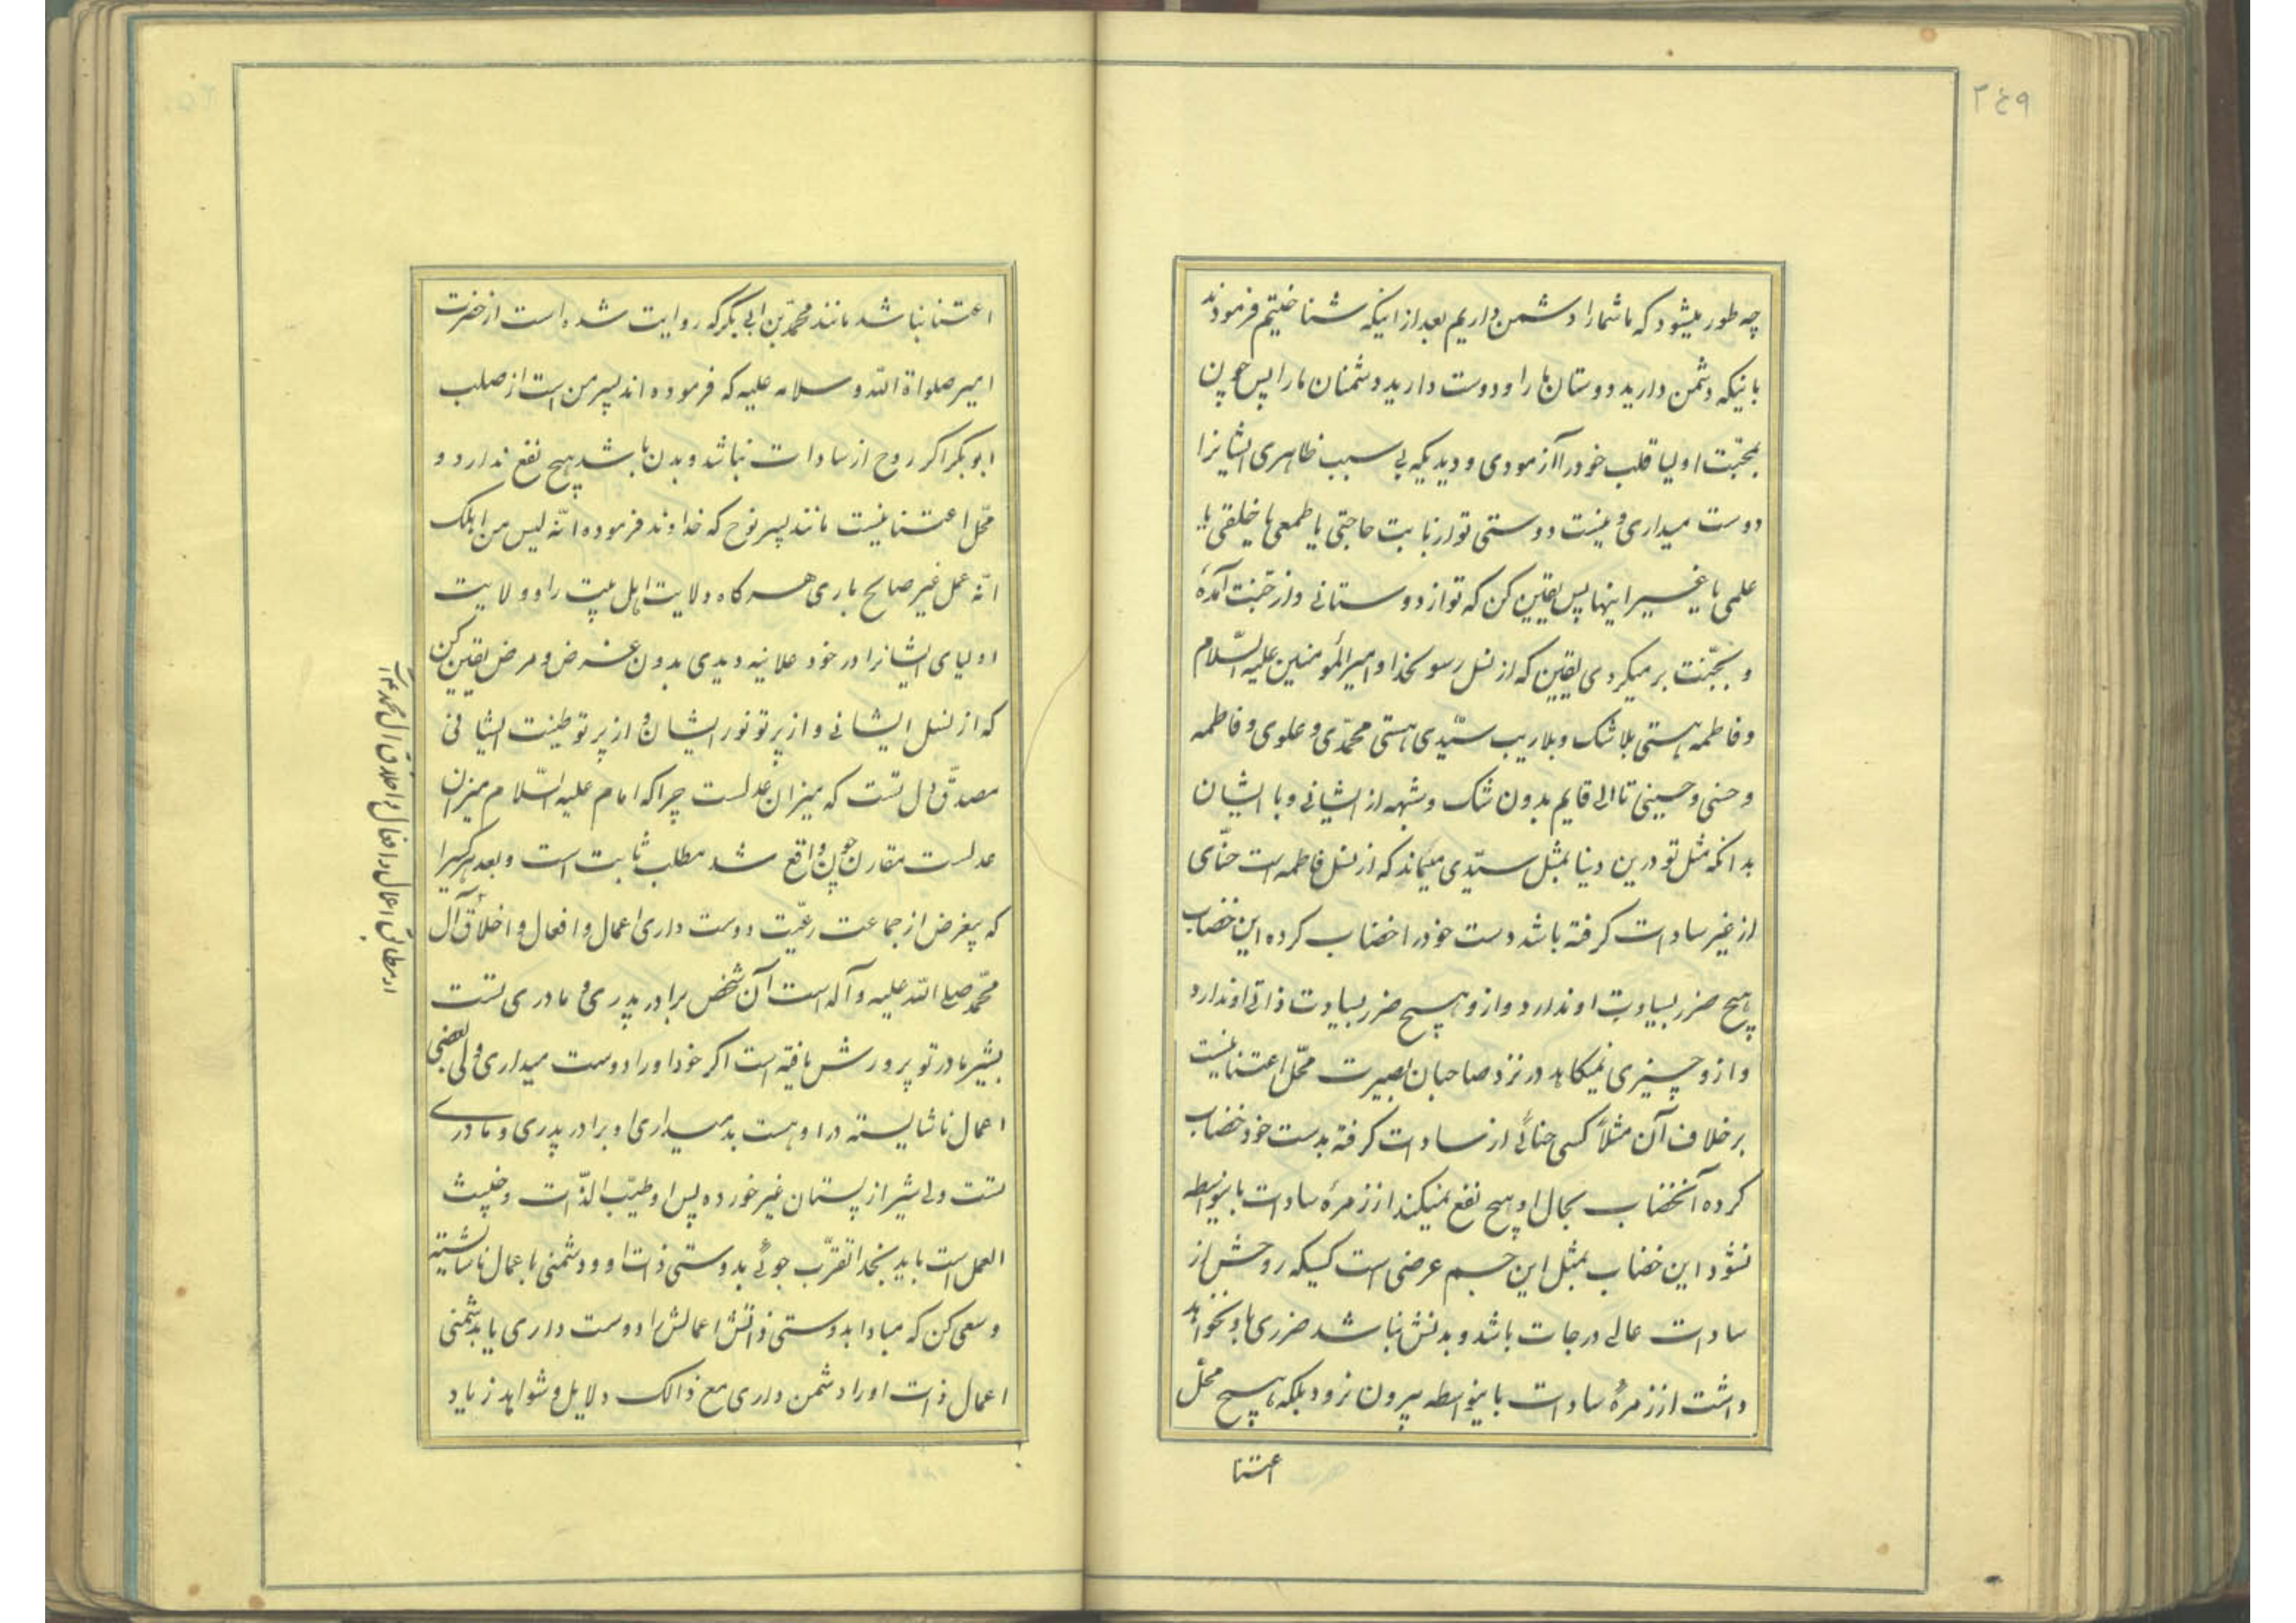 ۲٤۹
چه طور میشود که ما شما را دشمن داریم بعد از اینکه شناختیم فرمودند
باینکه دشمن دارید دوستان ما را و دوست دارید دشمنان ما را پس چون
بمحبّت اولیا قلب خود را آزمودی و دیدیکه بی سبب ظاهری ایشانرا
دوست میداری و نیست دوستی تو از بابت حاجتی یا طمعی یا خلقی یا
علمی یا غیر اینها پس یقین کن که تو از دوستانی و از جنّت آمدهٔ
و بجنّت بر میکردی یقین که از نسل رسولخدا و امیرالمؤمنین علیه السّلام
و فاطمه هستی بلا شک و بلا ریب سیّدی هستی محمّدی و علوی و فاطمه
و حسنی و حسینی تا الی قایم بدون شک و شبهه از ایشانی و با ایشان
بدانکه مثل تو درین دنیا بمثل سیّدی میماند که از نسل فاطمه است حنّای
از غیر سادات کرفته باشد دست خود را خضاب کرده این خضاب
هیچ ضرر بسیادت او ندارد و از و هیچ ضرر بسیادت ذاتی او ندارد
و از و چیزی نمیکاهد در نزد صاحبان بصیرت محّل اعتنا نیست
بر خلاف آن مثلاً کسی حنائی از سادات کرفته بدست خود خضاب
کرده آنخضاب بحال او هیچ نفع نمیکند از زمرهٔ سادات باینواسطه
نشود این خضاب بمثل این جسم عرضی است کسیکه روحش از
سادات عالی درجات باشد و بدنش نباشد ضرری باو نخواهد
داشت از زمرهٔ سادات باینواسطه بیرون نرود بلکه هیچ محّل
اعتنا
اعتنا نباشد مانند محمّد بن ابی بکر که روایت شده است از حضرت
امیر صلواة اللّه و سلامه علیه که فرموده اند پسر من است از صلب
ابو بکر اکر روح از سادات نباشد و بدن باشد هیچ نفع ندارد و
محّل اعتنا نیست مانند پسر نوح که خداوند فرموده انّه لیس من اهلک
انّه عمل غیر صالح باری هر کاه ولایت اهل بیت را و ولایت
اولیای ایشانرا در خود علانیه دیدی بدون غرض و مرض یقین کن
که از نسل ایشانی و از پرتو نور ایشان و از پرتو طینت ایشانی
مصدّق دل تست که میزان عدلست چرا که امام علیه السّلام میزان
عدلست مقارن چون واقع شد مطلب ثابت است و بعد هر کسیرا
که بیغرض از جماعت رعیّت دوست داری اعمال و افعال و اخلاق آل
محّمد صلی اللّه علیه و آله است آن شخص برادر پدری و مادری تست
بشیر مادر تو پرورش یافته است اکر خود او را دوست میداری ولی بعضی
اعمال ناشایسته در او هست بد میداری او برادر پدری و مادری
تست ولی شیر از پستان غیر خورده پس او طیّب الذّات و خبیث
العمل است باید بخدا تقرّب جوئی بدوستی ذات او و دشمنی با عمال ناشایسته
و سعی کن که مبادا بدوستی ذاتش اعمالش را دوست داری یا بدشمنی
اعمال ذات او را دشمن داری مع ذالک دلایل و شواهد زیاد
مطابق اعمال و افعال و اخلاق آل محمد